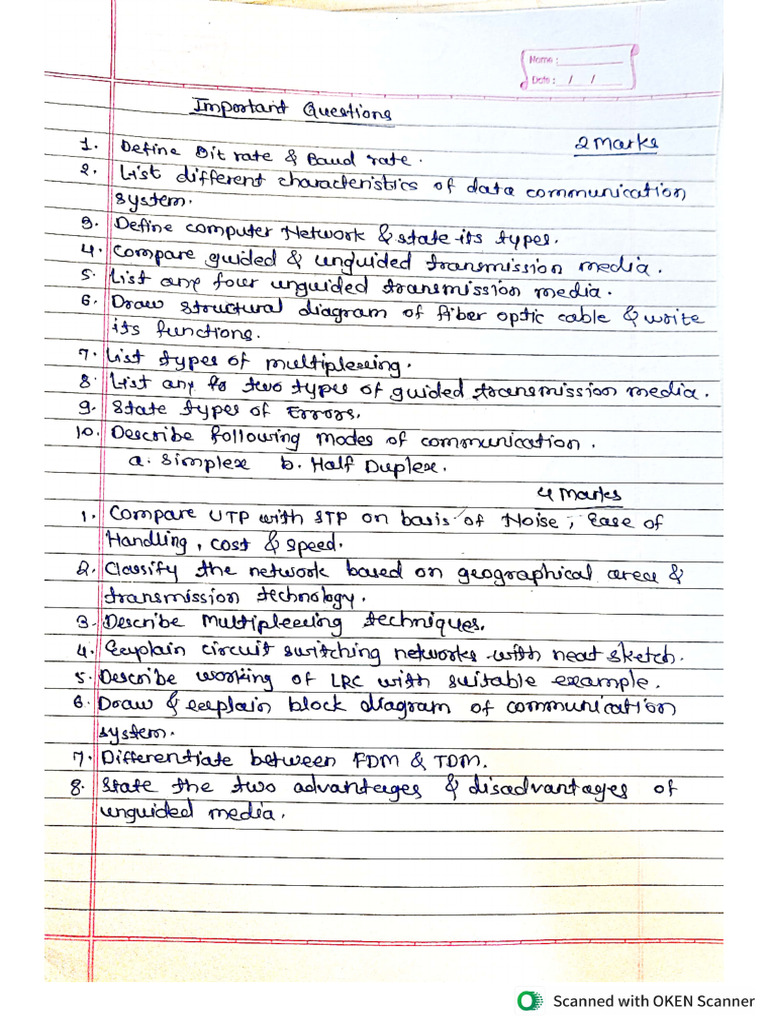 Name :
Date : / /
Important Questions
2 Marks
1. Define Bit rate & Baud rate.
2. List different characteristics of data communication
system.
3. Define computer Network & state its types.
4. Compare guided & unguided transmission media.
5. List any four unguided transmission media.
6. Draw structural diagram of fiber optic cable & write
its functions.
7. List types of multiplexing.
8. List any fo two types of guided transmission media.
9. State types of Errors.
10. Describe following modes of communication.
a. Simplex b. Half Duplex.
4 Marks
1. Compare UTP with STP on basis of Noise, Ease of
Handling, cost & speed.
2. Classify the network based on geographical area &
transmission technology.
3. Describe Multiplexing techniques.
4. Explain circuit switching networks with neat sketch.
5. Describe working of LRC with suitable example.
6. Draw & explain block diagram of communication
system.
7. Differentiate between FDM & TDM.
8. State the two advantages & disadvantages of
unguided media.
Scanned with OKEN Scanner